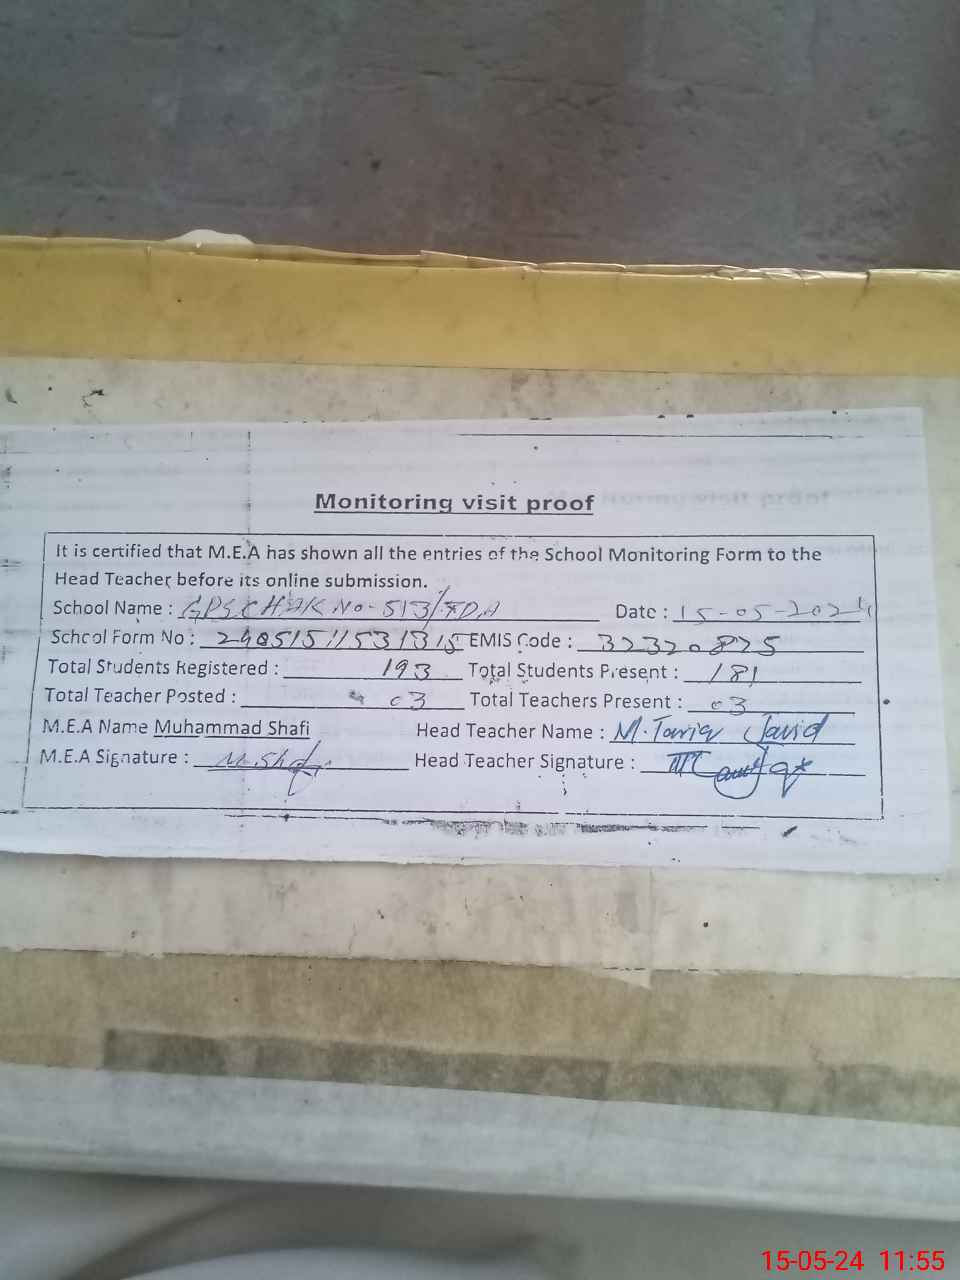 Monitoring visit proof
It is certified that M.E.A has shown all the entries of the School Monitoring Form to the
Head Teacher before its online submission.
School Name : GPS CHAK No-513/TDA Date : 15-05-2024
School Form No : EMIS Code : 32320825
Total Students Registered : 193 Total Students Present : 181
Total Teacher Posted : 03 Total Teachers Present : 03
M.E.A Name Muhammad Shafi Head Teacher Name : M. Tariq Javid
M.E.A Signature : M. Shafi Head Teacher Signature :
15-05-24 11:55